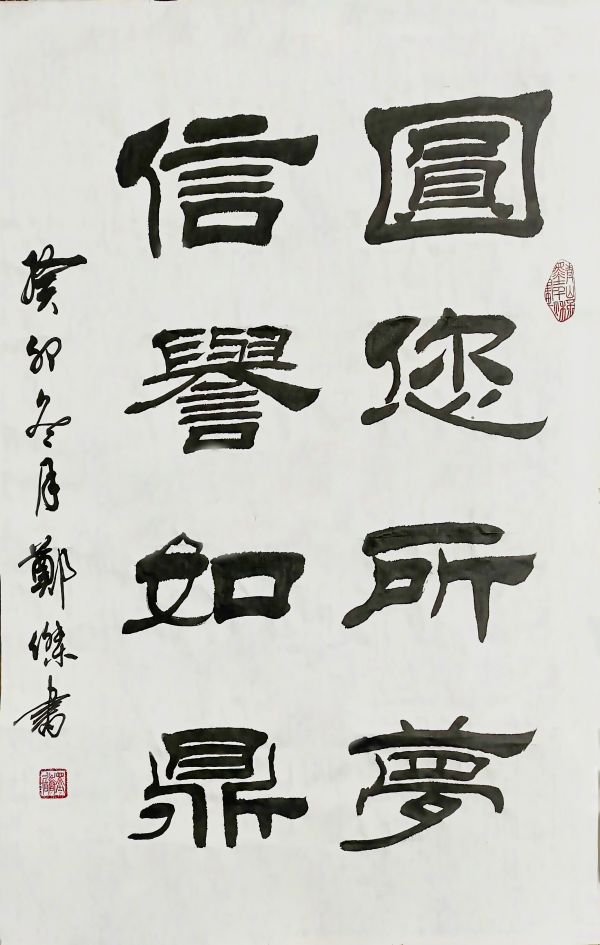 圓您所夢
信譽如鼎
癸卯冬月鄭傑書